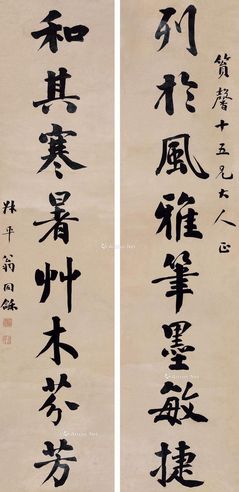 質馨十五兄大人正
列於風雅筆墨敏捷
和其寒暑艸木芬芳
叔平翁同龢